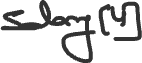 Salary [4]